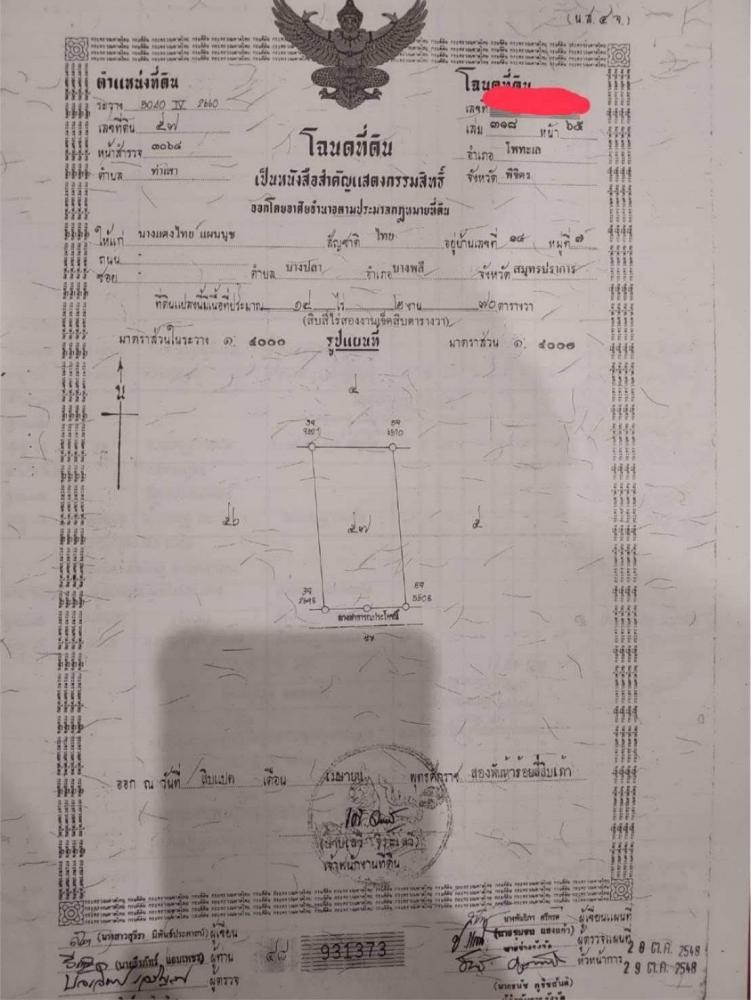 (น.ส. ๔ จ.)
ตำแหน่งที่ดิน
ระวาง 5040 IV 2660
เลขที่ดิน ๕๗
หน้าสำรวจ ๓๐๖๔
ตำบล ท่าเสา
โฉนดที่ดิน
เลขที่
เล่ม ๓๑๘ หน้า ๖๕
อำเภอ โพทะเล
จังหวัด พิจิตร
โฉนดที่ดิน
เป็นหนังสือสำคัญแสดงกรรมสิทธิ์
ออกโดยอาศัยอำนาจตามประมวลกฎหมายที่ดิน
ให้แก่ นางแตงไทย แผนนุช สัญชาติ ไทย อยู่บ้านเลขที่ ๑๔ หมู่ที่ ๗
ถนน -
ซอย - ตำบล บางปลา อำเภอ บางพลี จังหวัด สมุทรปราการ
ที่ดินแปลงนี้มีเนื้อที่ประมาณ ๑๔ ไร่ ๒ งาน ๗๐ ตารางวา
(สิบสี่ไร่สองงานเจ็ดสิบตารางวา)
มาตราส่วนในระวาง ๑: ๔๐๐๐ รูปแผนที่ มาตราส่วน ๑: ๔๐๐๐
น
๔
๕๖ ๕๗ ๕
ทางสาธารณประโยชน์
ออก ณ วันที่ สิบแปด เดือน เมษายน พุทธศักราช สองพันห้าร้อยสี่สิบเก้า
เจ้าพนักงานที่ดิน
ผู้เขียน
ผู้ทาน
ผู้ตรวจ
๔๘ 931373
ผู้เขียนแผนที่
ผู้ตรวจแผนที่ 28 ต.ค. 2548
หัวหน้าการ 29 ต.ค. 2548